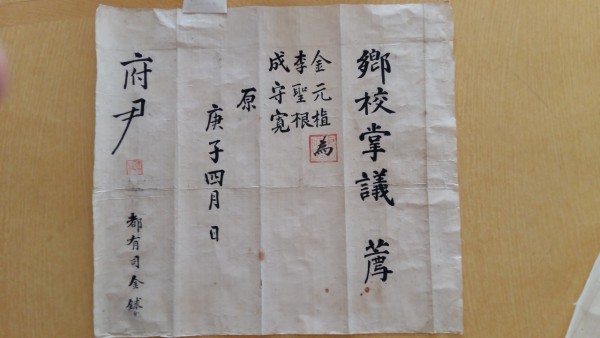 鄉校掌議 薦
金元植 為
李聖根
成守寬
原
庚子四月 日
府尹
都有司金